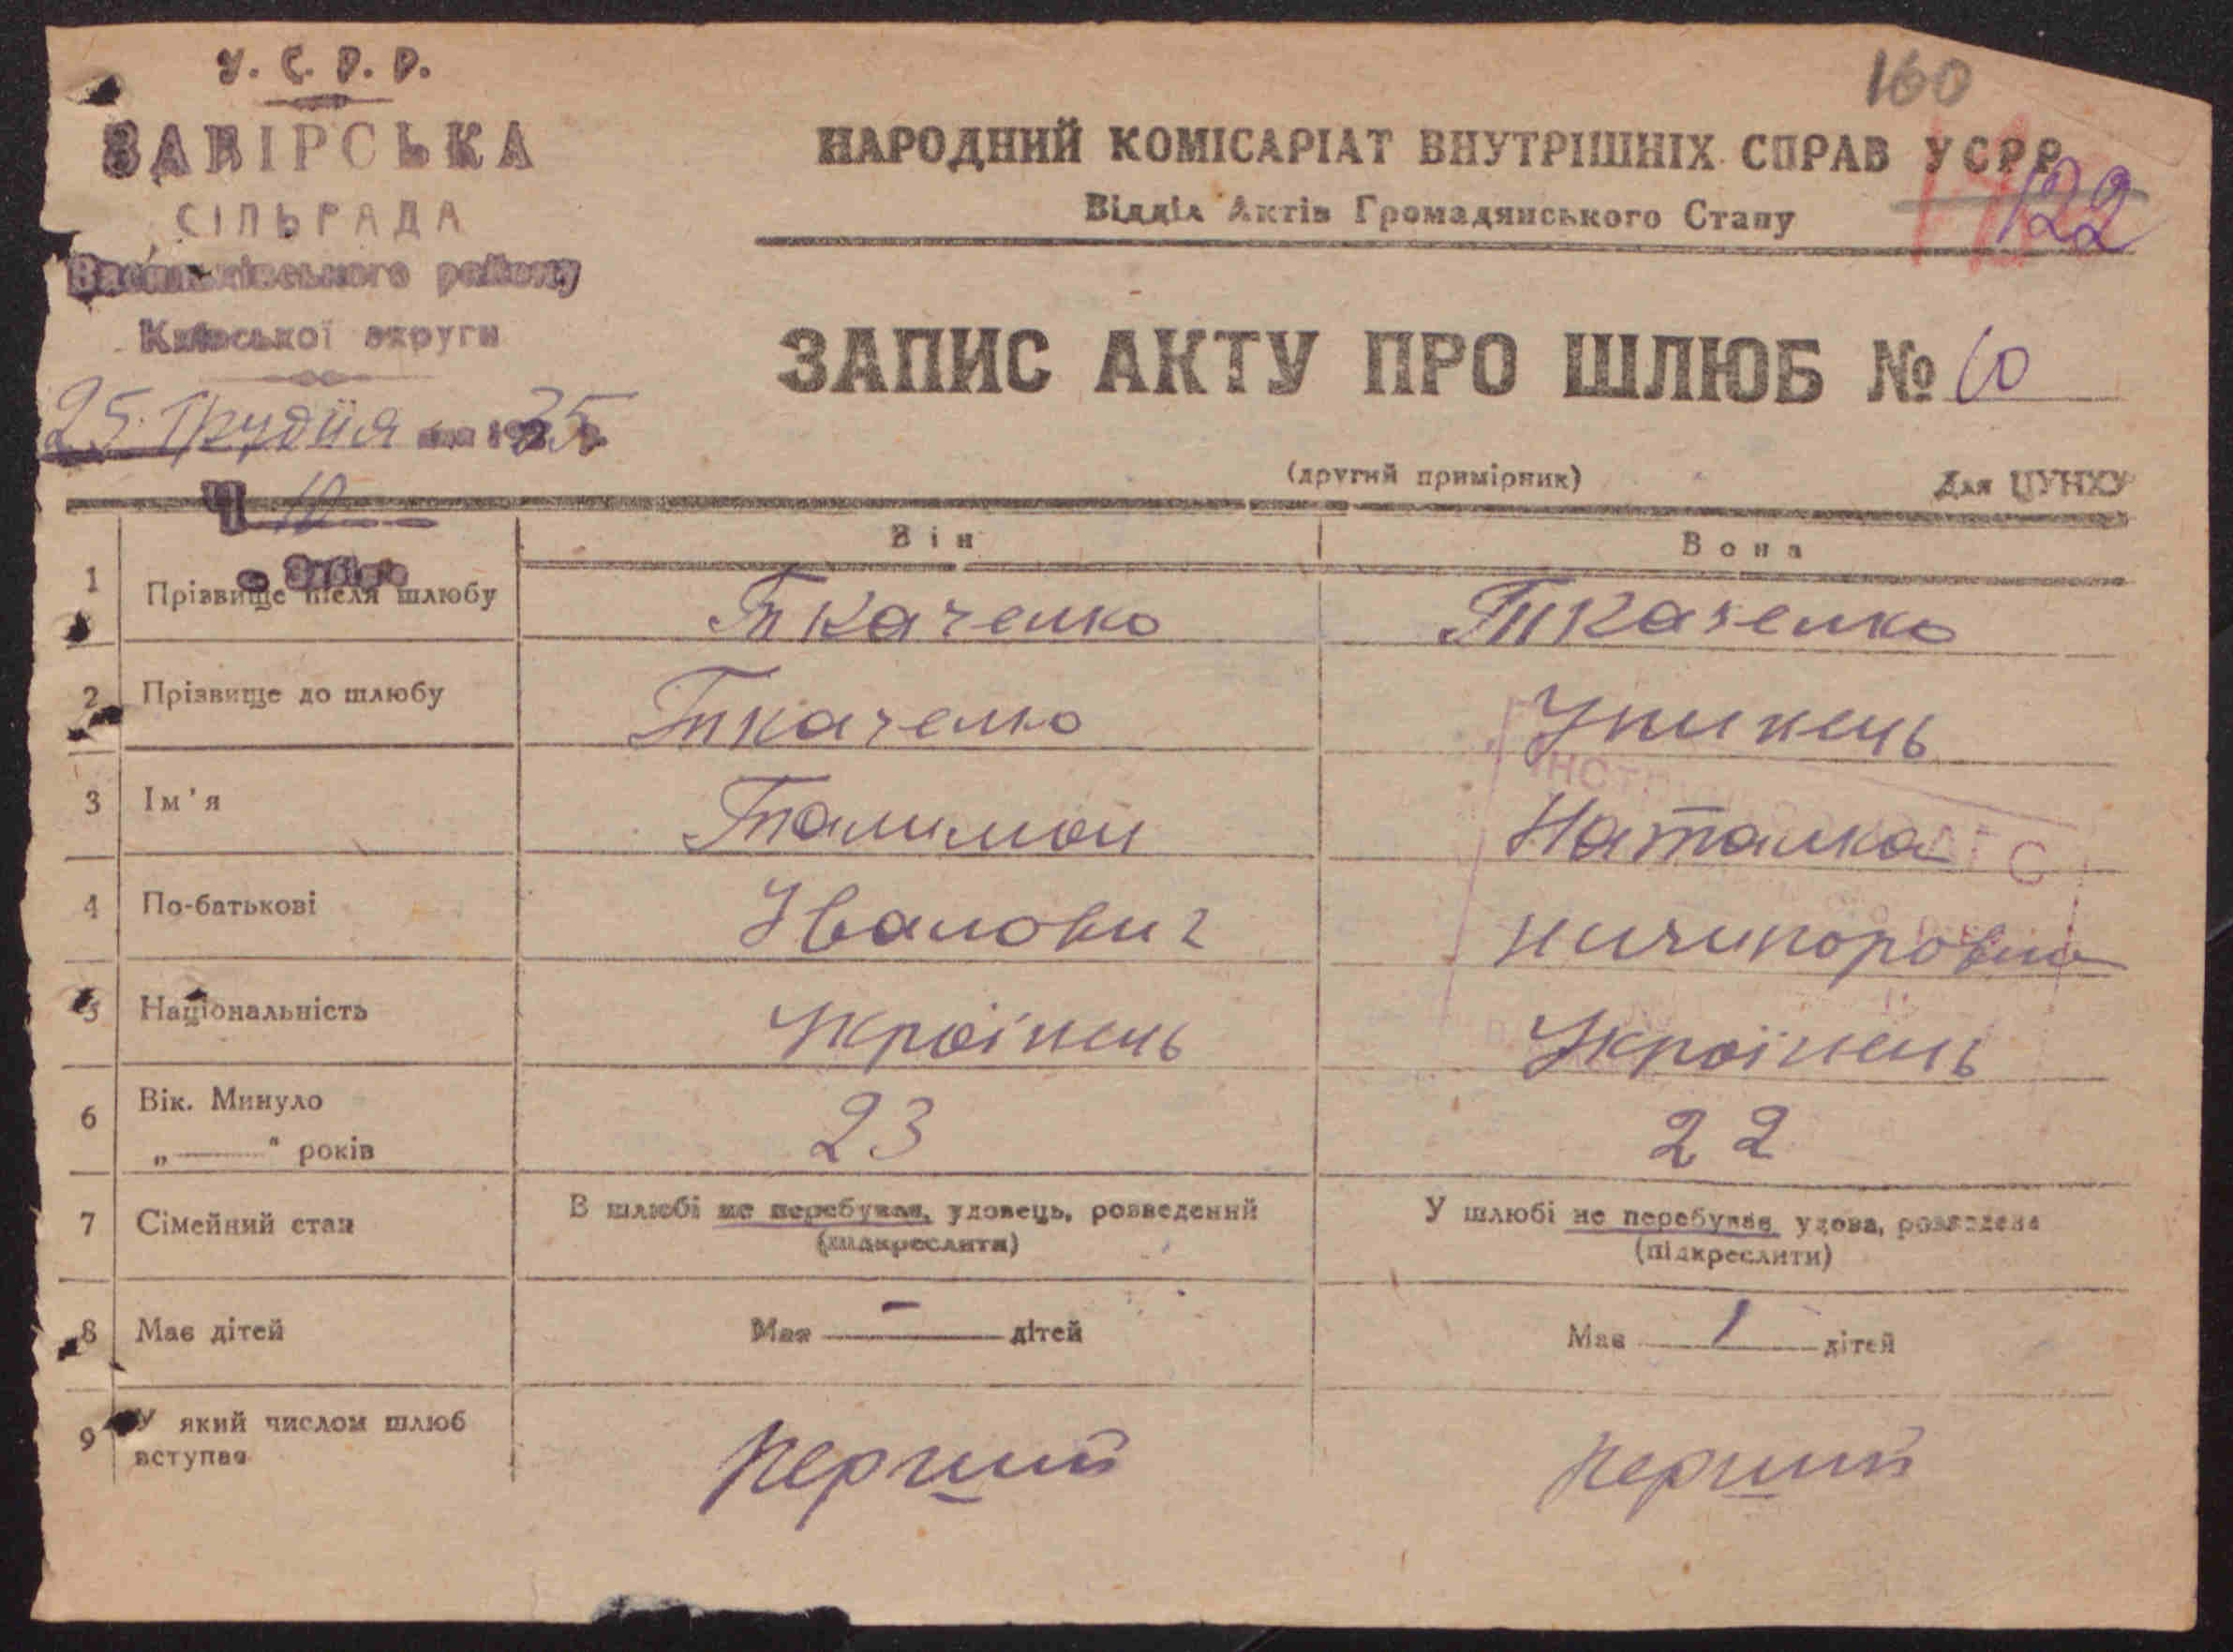 У. С. Р. Р.
ЗАБІРСЬКА
СІЛЬРАДА
Васильківського району
Київської округи
25 Грудня 1935 р.
Ч 10
с. Забір'я
160
НАРОДНИЙ КОМІСАРІАТ ВНУТРІШНІХ СПРАВ УСРР
122
Відділ Актів Громадянського Стану
ЗАПИС АКТУ ПРО ШЛЮБ № 10
(другий примірник) Для ЦУНХУ
Він Вона
1 Прізвище після шлюбу Ткаченко Ткаченко
2 Прізвище до шлюбу Ткаченко
3 Ім'я Талимон Наталка
4 По-батькові Іванович Ничипоровна
5 Національність Українець Українець
6 Вік. Минуло „——" років 23 22
7 Сімейний стан В шлюбі не перебував, удовець, розведений (підкреслити) У шлюбі не перебувала, удова, розведена (підкреслити)
8 Має дітей Має — дітей Має 1 дітей
9 У який числом шлюб вступає перший перший